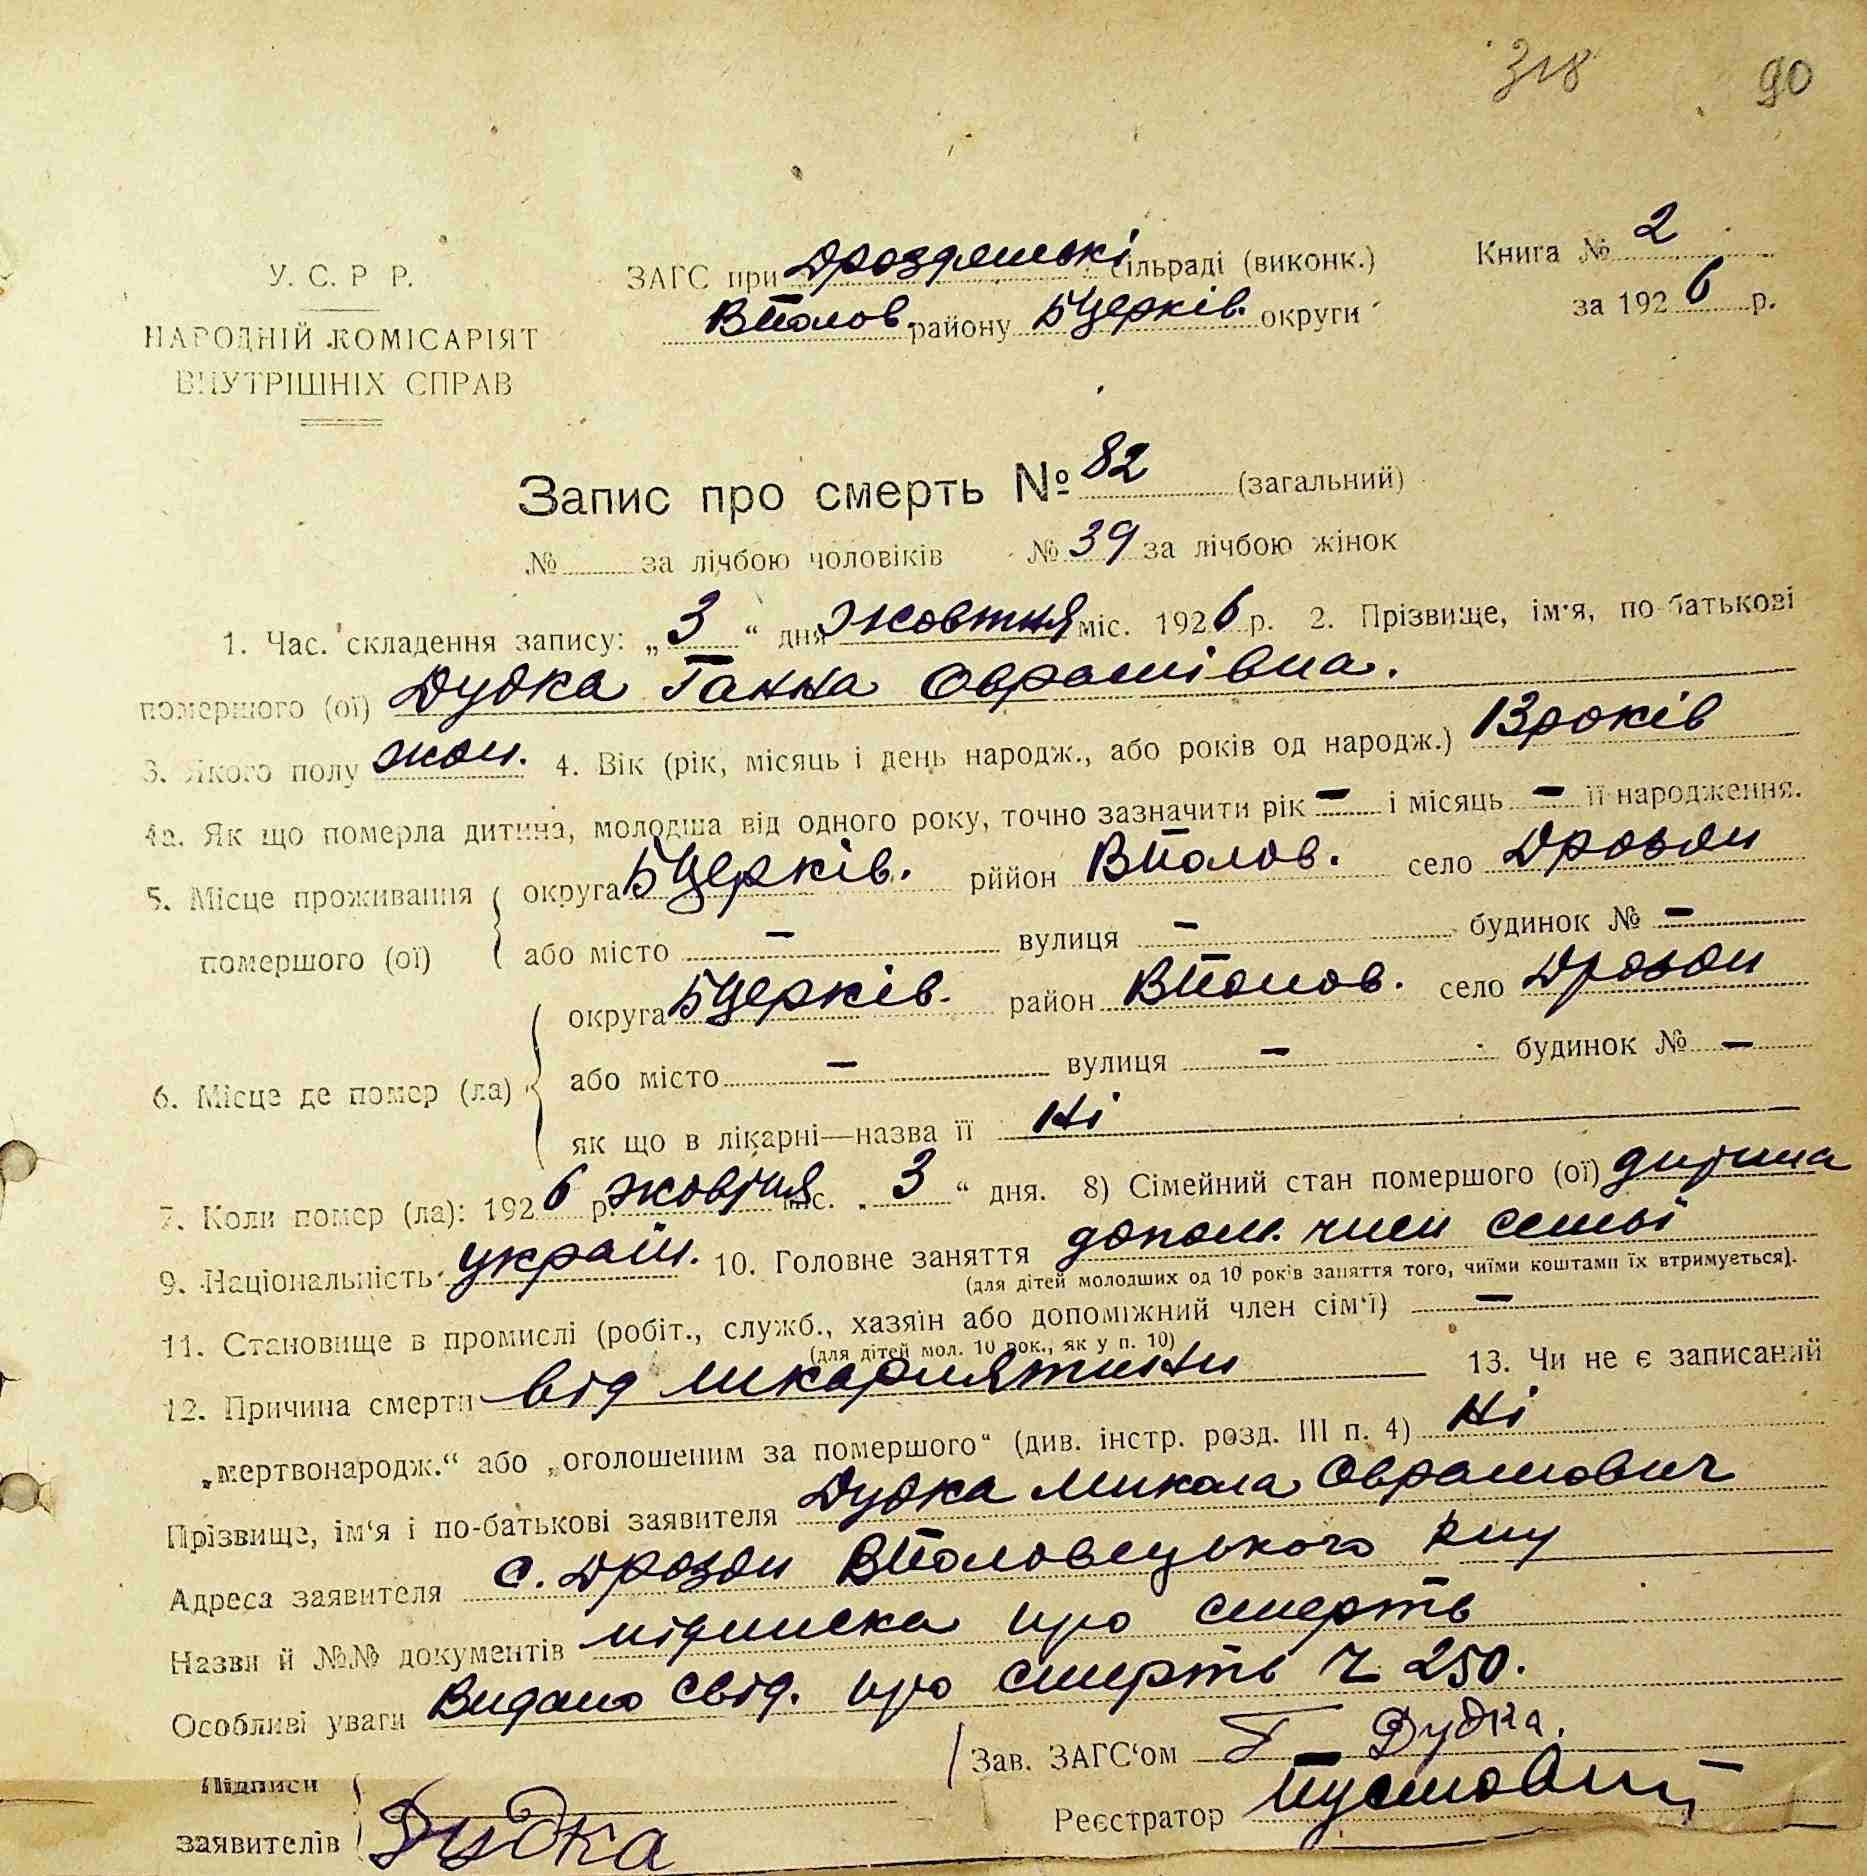 318 90
У. С. Р Р.
НАРОДНІЙ КОМІСАРІЯТ
ВНУТРІШНІХ СПРАВ
ЗАГС при Дроздянські сільраді (виконк.)
ВПолов. району БЦерків. округи
Книга № 2
за 1926 р.
Запис про смерть № 82 (загальний)
№ за лічбою чоловіків № 39 за лічбою жінок
1. Час. складення запису: „3“ дня жовтня міс. 1926 р. 2. Прізвище, ім'я, по-батькові
помершого (ої) Дудка Ганна Оврамівна.
3. Якого полу жон. 4. Вік (рік, місяць і день народж., або років од народж.) 13 років
4а. Як що померла дитина, молодша від одного року, точно зазначити рік – і місяць – її народження.
5. Місце проживання округа БЦерків. рййон ВПолов. село Дрозди
помершого (ої) або місто – вулиця – будинок № –
округа БЦерків. район ВПолов. село Дрозди
6. Місце де помер (ла) або місто – вулиця – будинок № –
як що в лікарні—назва її Ні
7. Коли помер (ла): 1926 р. жовтня міс. „3“ дня. 8) Сімейний стан помершого (ої) дитина
9. Національність україн. 10. Головне заняття допом. член семьї
(для дітей молодших од 10 років заняття того, чиїми коштами їх втримується).
11. Становище в промислі (робіт., служб., хазяїн або допоміжний член сім'ї) –
(для дітей мол. 10 рок., як у п. 10)
12. Причина смерти від шкарлятини 13. Чи не є записаний
„мертвонародж.“ або „оголошеним за помершого“ (див. інстр. розд. III п. 4) Ні
Прізвище, ім'я і по-батькові заявителя Дудка Микола Оврамович
Адреса заявителя с. Дрозди ВПоловецького р-ну
Назви й №№ документів підписка про смерть
Особливі уваги Видано свід. про смерть Ч 250.
Зав. ЗАГС'ом Г Дудка.
Підписи
заявителів Дудка
Реєстратор